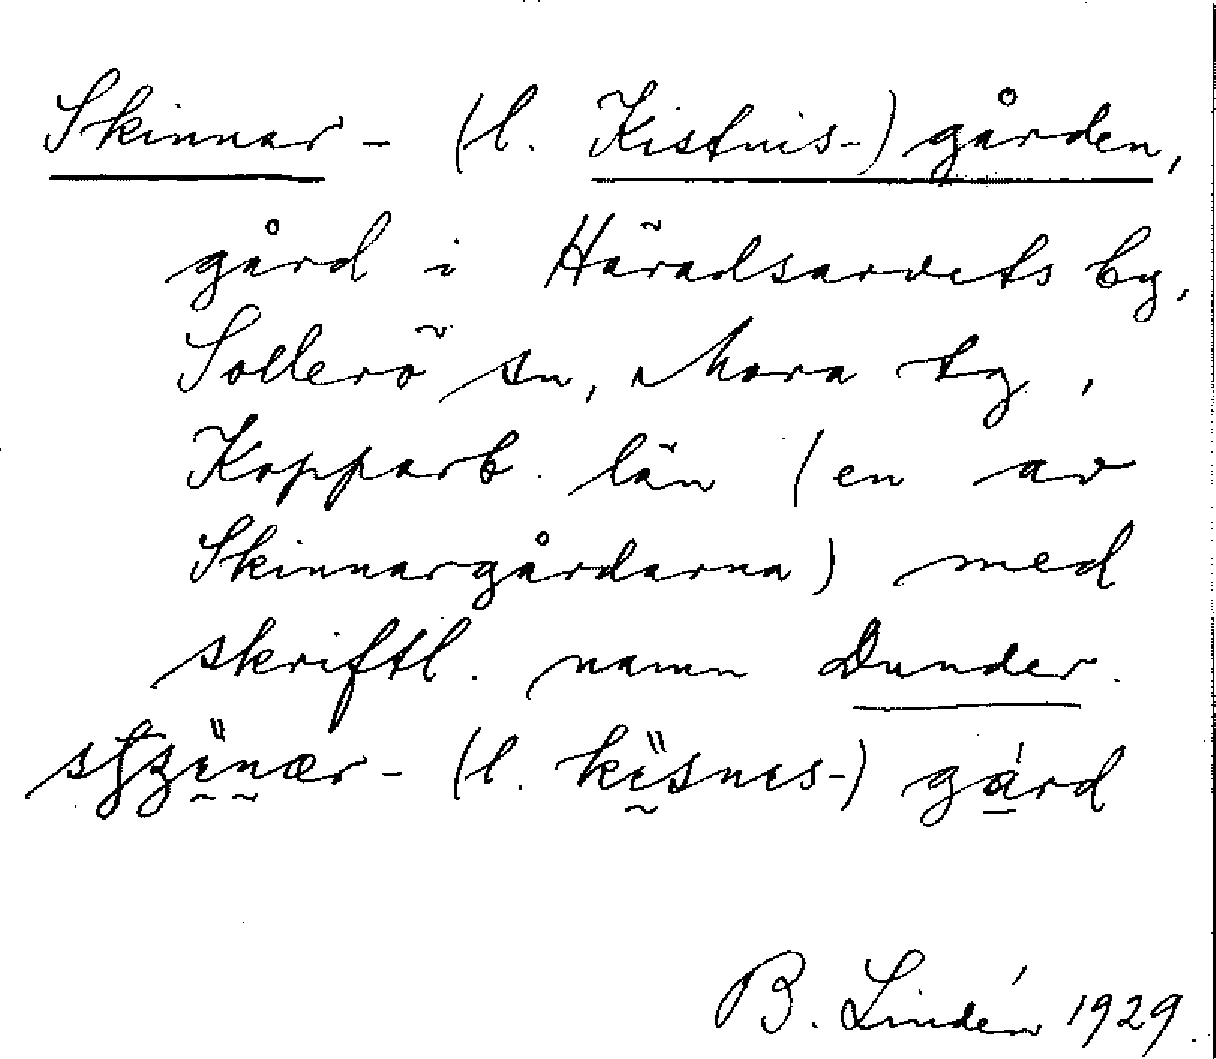 Skinnar- (l. Kistnis-) gården,
gård i Häradsarvets by,
Sollerö sn, Mora tg,
Kopparb. län (en av
Skinnargårdarna) med
skriftl. namn Dunder.
(l. kisnis-) gård
B. Lindén 1929.